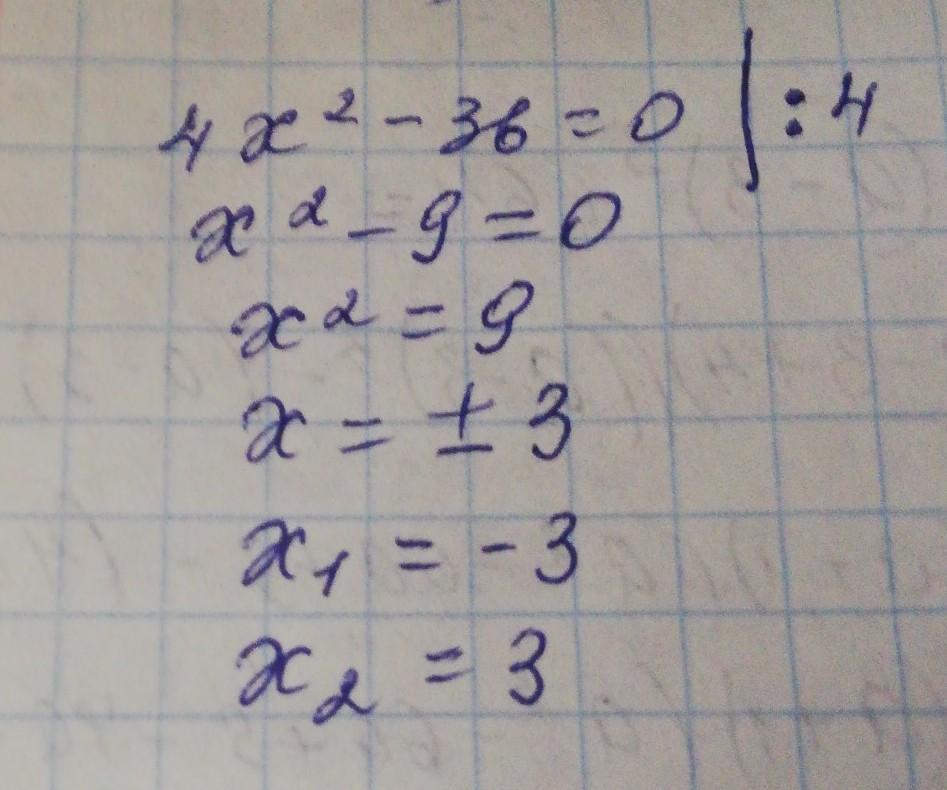 4x² - 36 = 0 | : 4
x² - 9 = 0
x² = 9
x = ± 3
x₁ = - 3
x₂ = 3